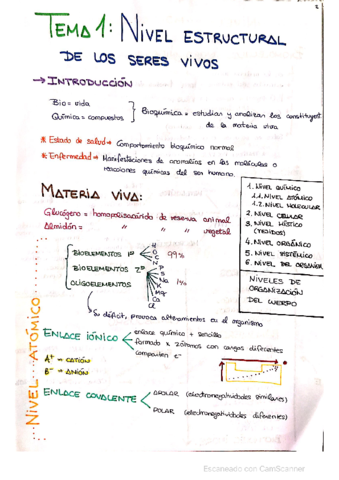 TEMA 1: NIVEL ESTRUCTURAL
DE LOS SERES VIVOS
→ INTRODUCCIÓN
Bio = vida
Química = compuestos
Bioquímica = estudian y analizan los constituyent
de la materia viva
* Estado de salud → Comportamiento bioquímico normal
* Enfermedad → Manifestaciones de anomalías en las moléculas o
reacciones químicas del ser humano.
MATERIA VIVA:
Glucógeno = homopolisacárido de reserva animal
Almidón = " " " vegetal
BIOELEMENTOS 1º
H
O
C
N
99%
BIOELEMENTOS 2º
OLIGOELEMENTOS
P
S
Na
K
Mg
Ca
Cl
1%
Su déficit, provoca alteraciones en el organismo
1. NIVEL QUÍMICO
1.1. NIVEL ATÓMICO
1.2. NIVEL MOLECULAR
2. NIVEL CELULAR
3. NIVEL HÍSTICO
(TEJIDOS)
4. NIVEL ORGÁNICO
5. NIVEL SISTÉMICO
6. NIVEL DEL ORGANISM
NIVELES DE
ORGANIZACIÓN
DEL CUERPO
NIVEL ATÓMICO
ENLACE IÓNICO
enlace químico + sencillo
formado x 2 átomos con cargas diferentes
comparten e⁻
A⁺ = CATIÓN
B⁻ = ANIÓN
ENLACE COVALENTE
APOLAR (electronegatividades similares)
POLAR (electronegatividades diferentes)
Escaneado con CamScanner